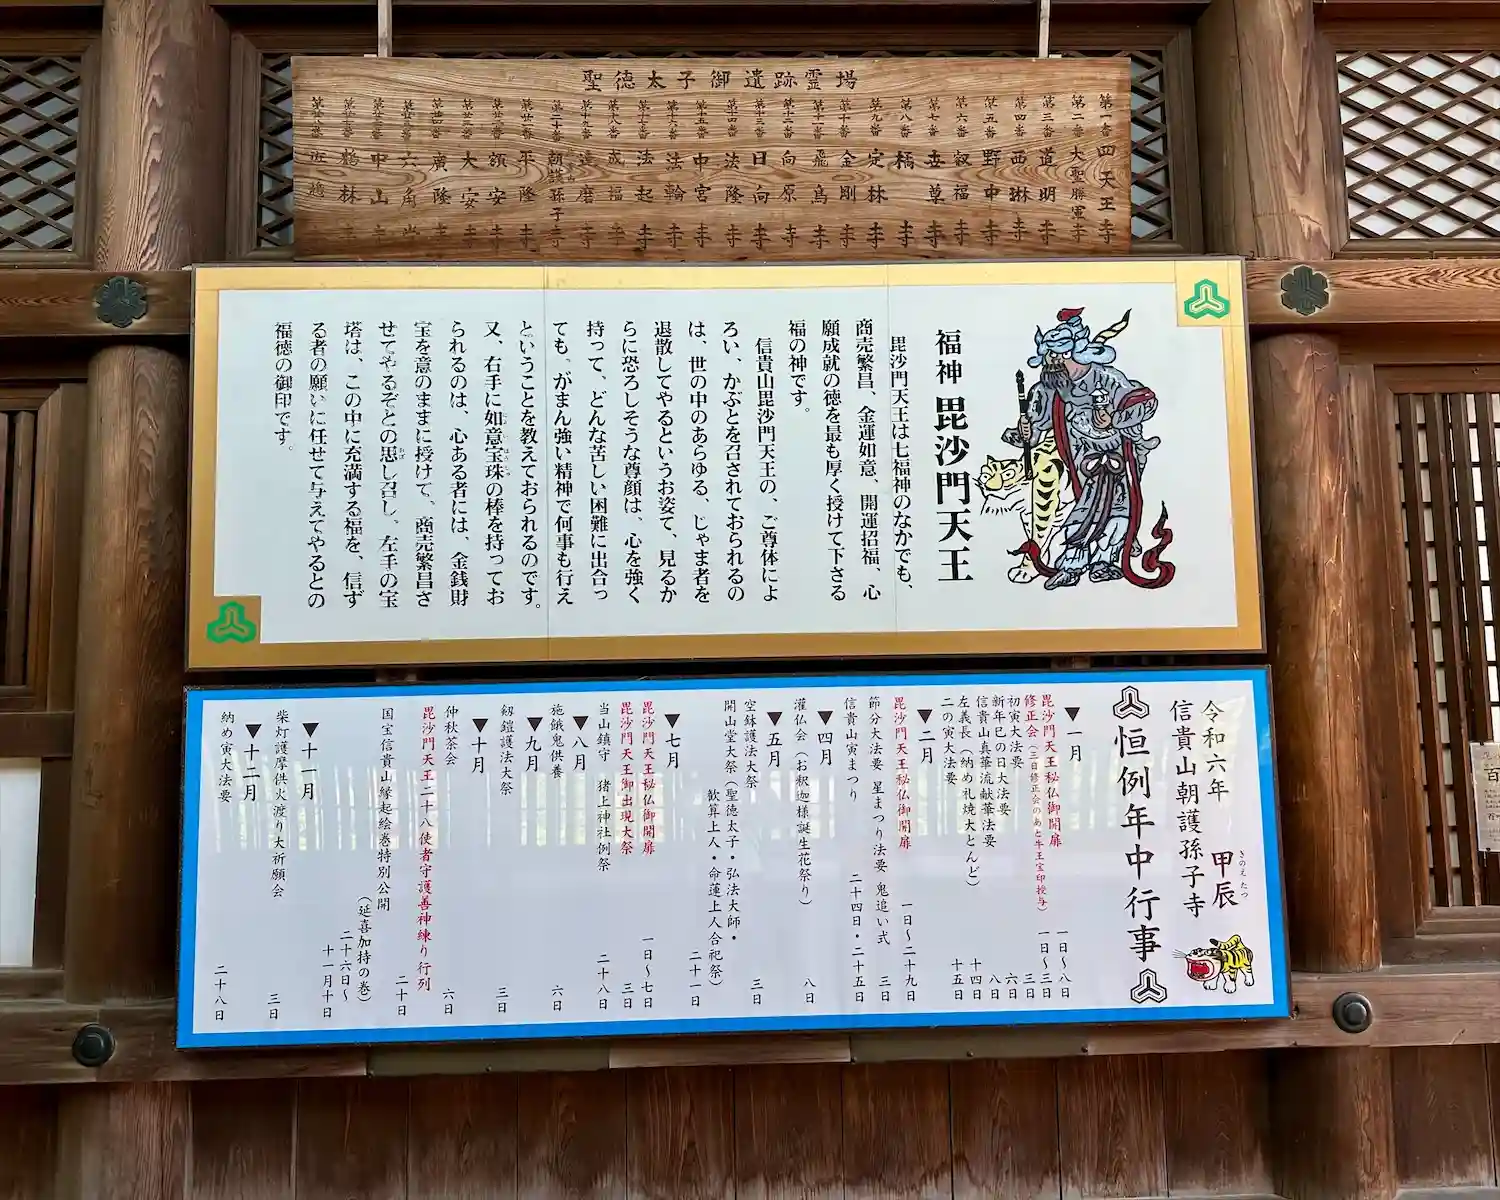 聖徳太子御遺跡霊場
第一番 四天王寺
第二番 大聖勝軍寺
第三番 道明寺
第四番 西琳寺
第五番 野中寺
第六番 叡福寺
第七番 世尊寺
第八番 橘寺
第九番 定林寺
第十番 金剛寺
第十一番 飛鳥寺
第十二番 向原寺
第十三番 日向寺
第十四番 法隆寺
第十五番 中宮寺
第十六番 法輪寺
第十七番 法起寺
第十八番 成福寺
第十九番 達磨寺
第二十番 朝護孫子寺
平隆寺
額安寺
大安寺
廣隆寺
六角堂
中山寺
鶴林寺
福神 毘沙門天王
毘沙門天王は七福神のなかでも、
商売繁昌、金運如意、開運招福、心
願成就の徳を最も厚く授けて下さる
福の神です。
信貴山毘沙門天王の、ご尊体によ
ろい、かぶとを召されておられるの
は、世の中のあらゆる、じゃま者を
退散してやるというお姿て、見るか
らに恐ろしそうな尊顔は、心を強く
持って、どんな苦しい困難に出合っ
ても。がまん強い精神で何事も行え
ということを教えておられるのです。
又、右手に如意宝珠の棒を持ってお
られるのは、心ある者には、金銭財
宝を意のままに授けて、商売繁昌さ
せてやるぞとの思し召し、左手の宝
塔は、この中に充満する福を、信ず
る者の願いに任せて与えてやるとの
福徳の御印です。
令和六年 甲辰
きのえ たつ
信貴山朝護孫子寺
恒例年中行事
▼一月
毘沙門天王秘仏御開扉 一日～八日
修正会(三日修正会のあと牛王宝印授与) 一日～三日
初寅大法要 三日
新年巳の日大法要 六日
信貴山真華流献華法要 八日
左義長(納め札焼大とんど) 十四日
二の寅大法要 十五日
▼二月
毘沙門天王秘仏御開扉 一日～二十九日
節分大法要 星まつり法要 鬼追い式 三日
信貴山寅まつり 二十四日・二十五日
▼四月
灌仏会(お釈迦様誕生花祭り) 八日
▼五月
空鉢護法大祭 三日
開山堂大祭(聖徳太子・弘法大師・
歓算上人・命蓮上人合祀祭) 二十一日
▼七月
毘沙門天王秘仏御開扉 一日～七日
毘沙門天王御出現大祭 三日
当山鎮守 猪上神社例祭 二十八日
▼八月
施餓鬼供養 六日
▼九月
剱鎧護法大祭 三日
▼十月
仲秋茶会 六日
毘沙門天王二十八使者守護善神練り行列 二十日
国宝信貴山縁起絵巻特別公開
(延喜加持の巻) 二十六日～
十一月十日
▼十一月
柴灯護摩供火渡り大祈願会 三日
▼十二月
納め寅大法要 二十八日